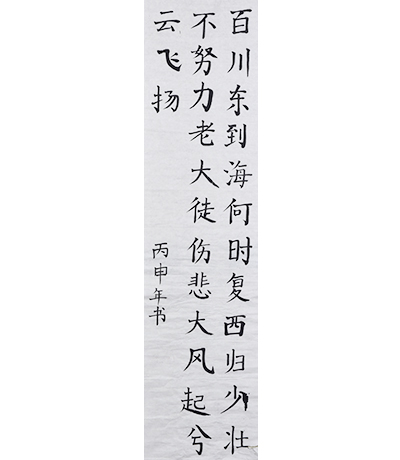 百川东到海何时复西归少壮
不努力老大徒伤悲大风起兮
云飞扬
丙申年书